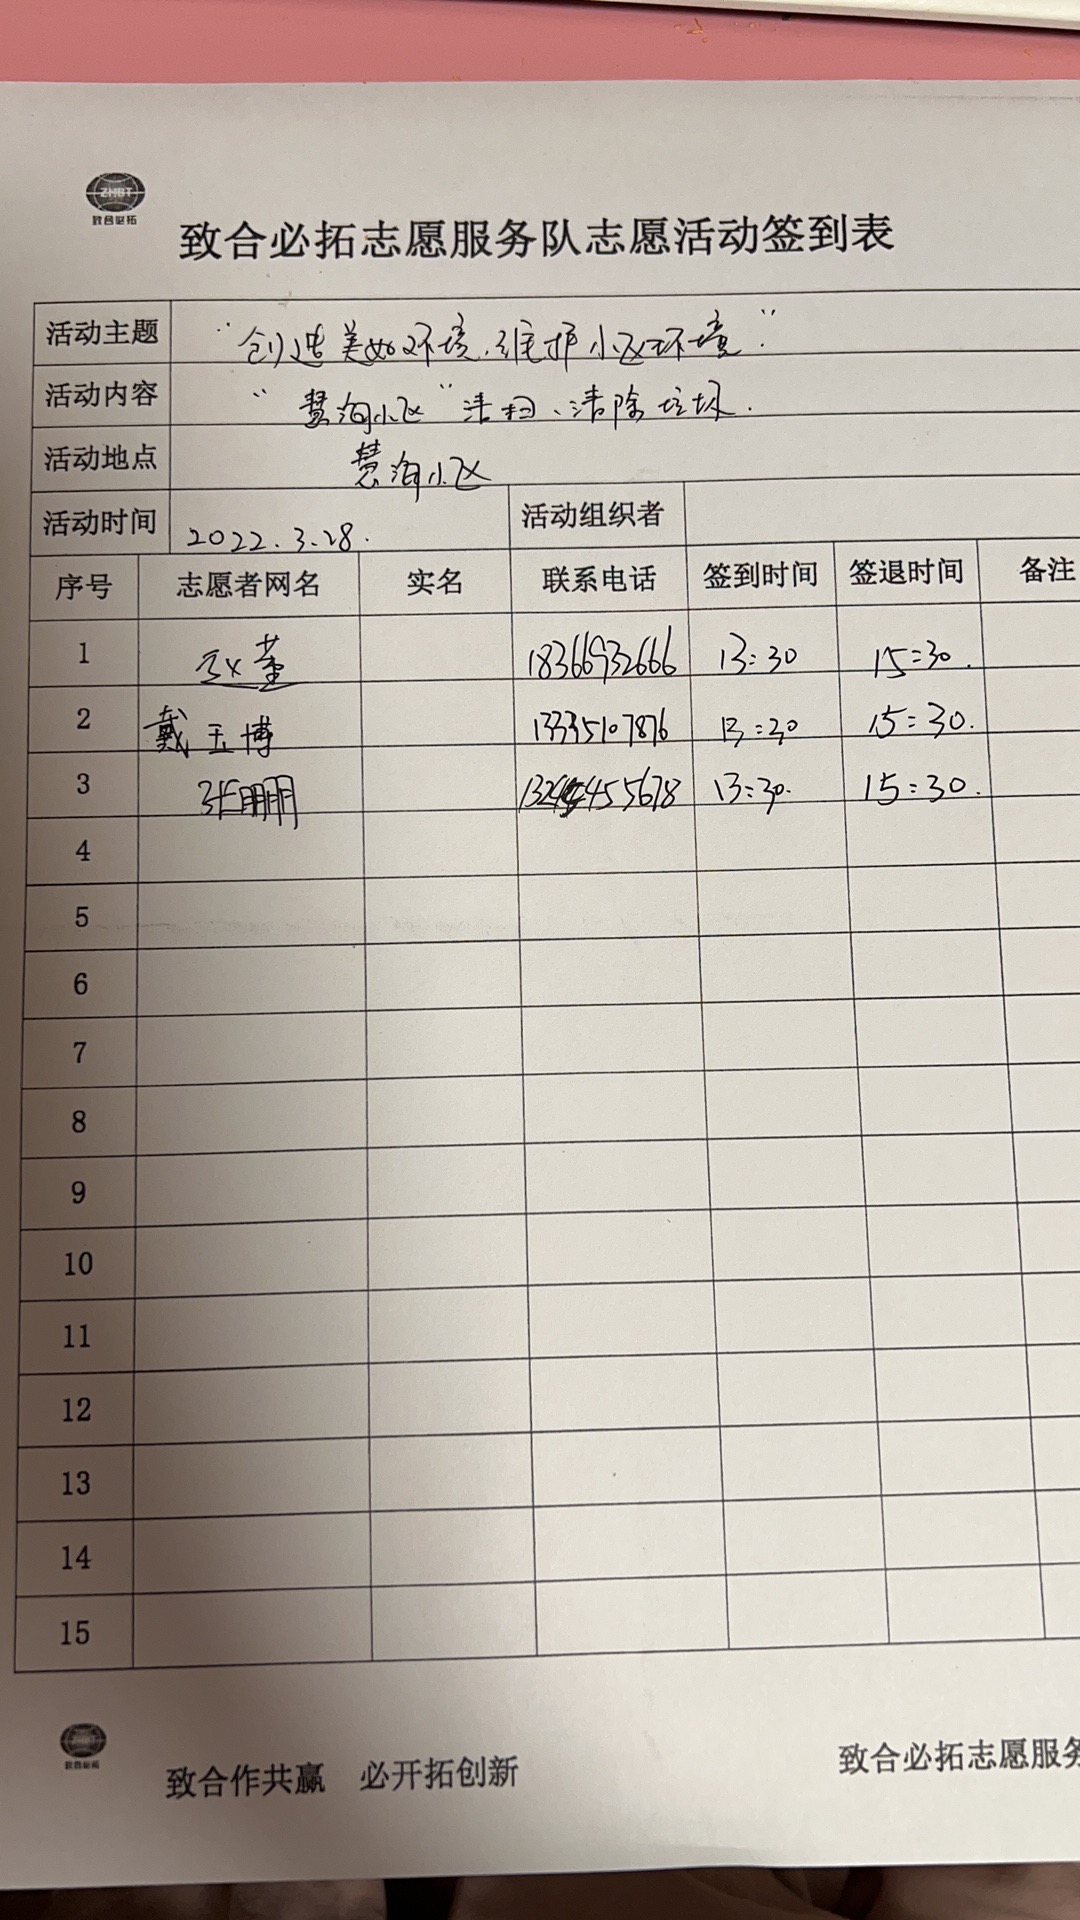 ZHBT
致合必拓
致合必拓志愿服务队志愿活动签到表
活动主题 "创造美好环境、维护小区环境"
活动内容 "慧海小区"清扫、清除垃圾.
活动地点 慧海小区
活动时间 2022.3.28. 活动组织者
序号 志愿者网名 实名 联系电话 签到时间 签退时间 备注
1 18366932666 13:30 15:30.
2 戴玉博 13335107876 13:30 15:30.
3 张鹏 13:30. 15:30.
4
5
6
7
8
9
10
11
12
13
14
15
致合作共赢 必开拓创新
致合必拓志愿服务